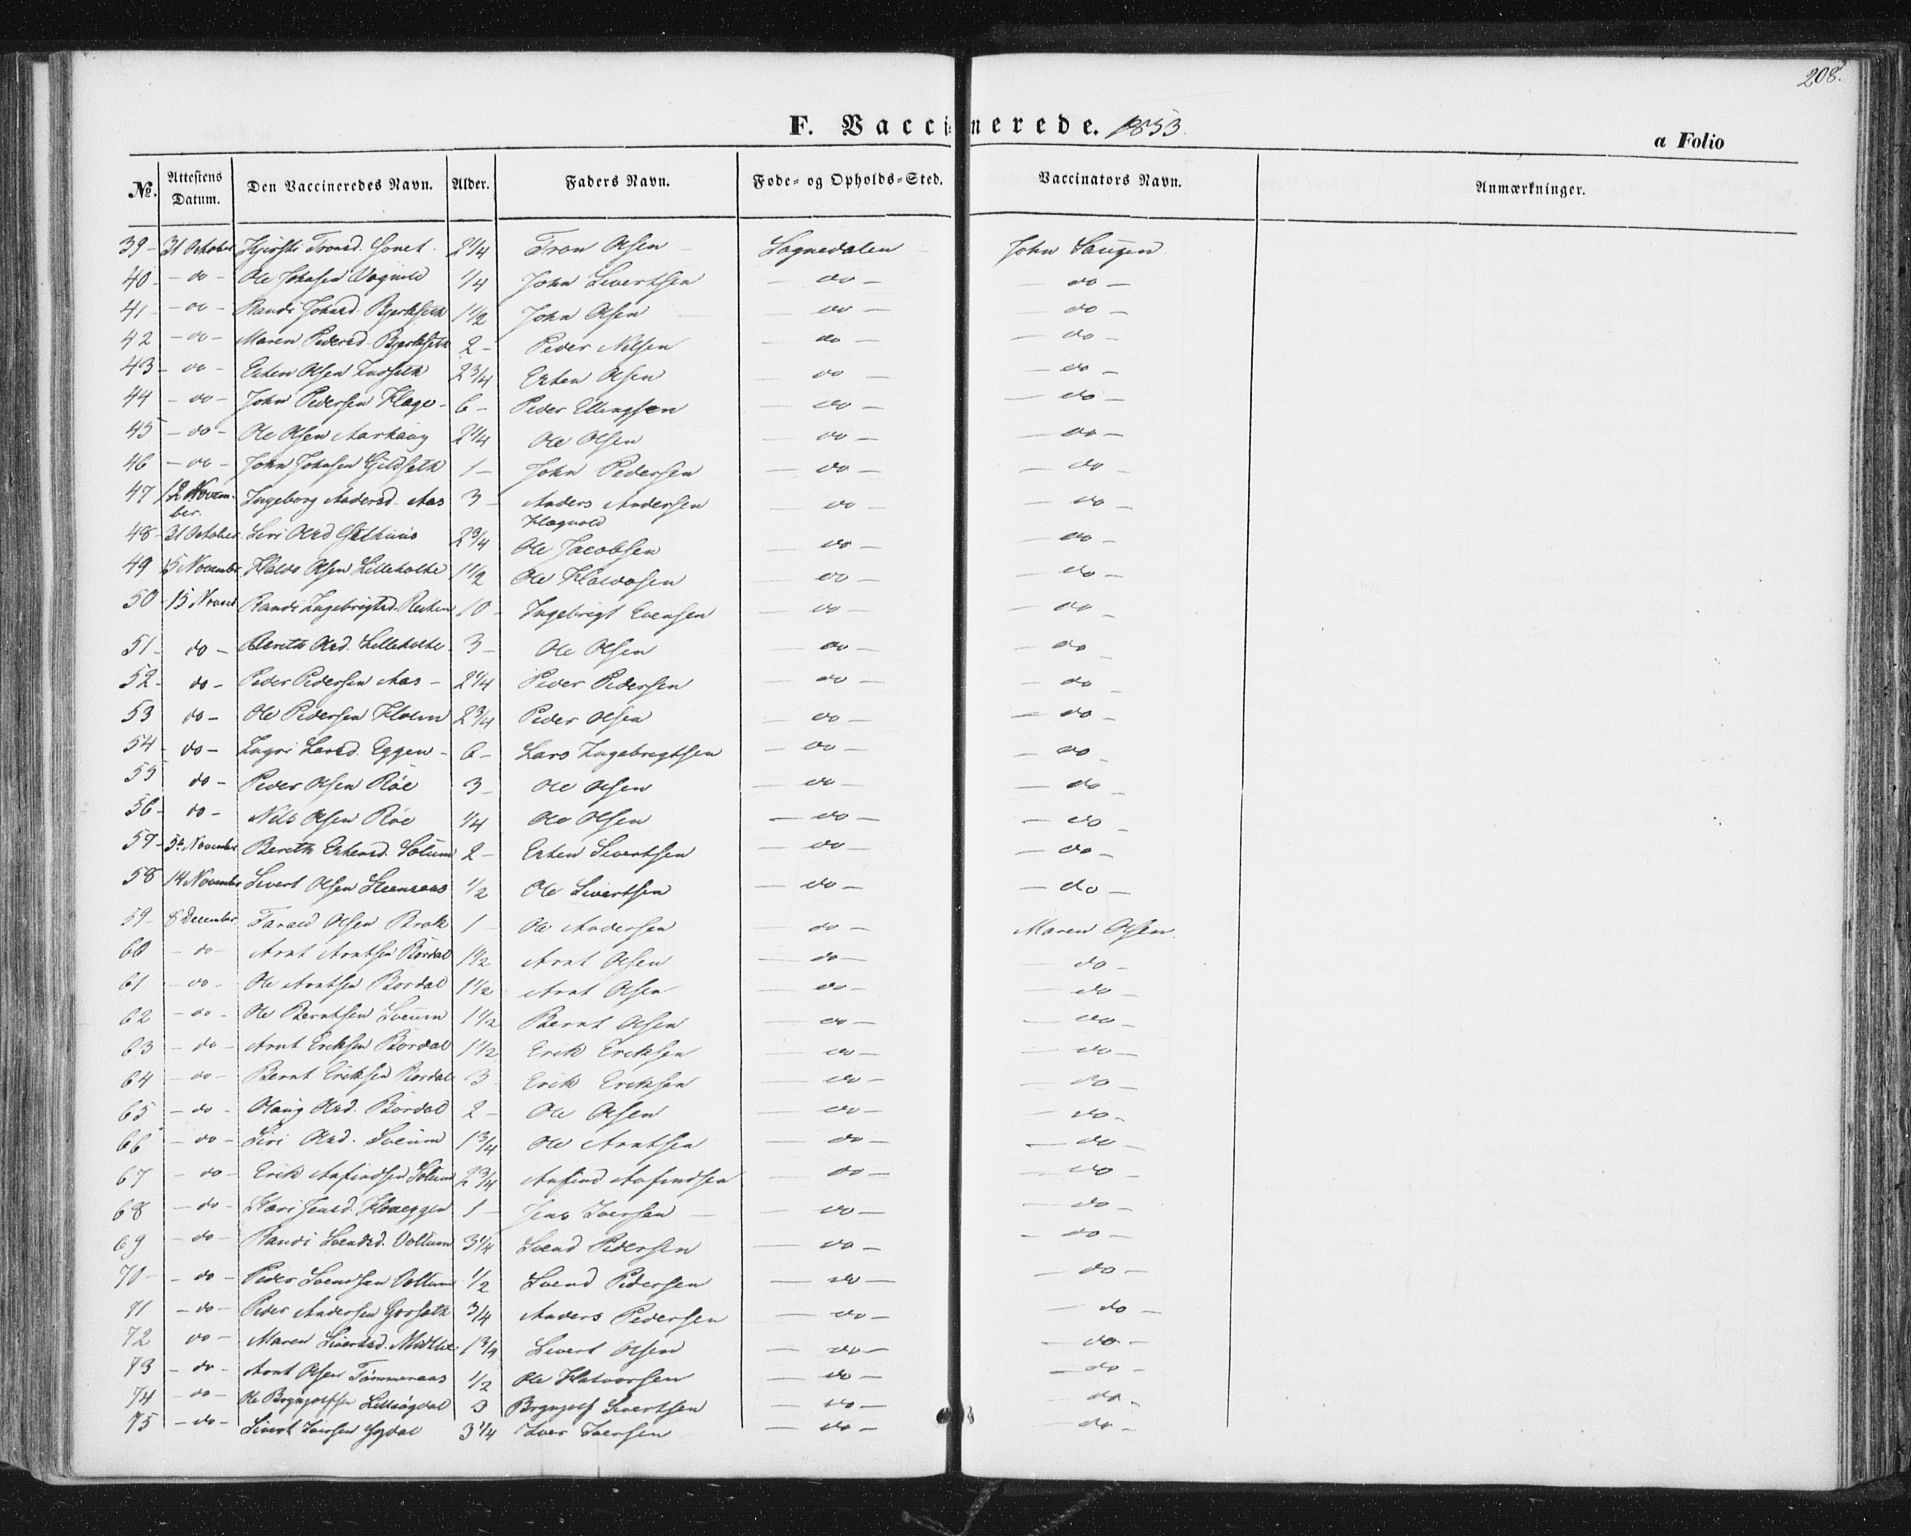 208.
F. Vaccinerede. 1853.
a Folio
No. Attestens Datum. Den Vaccineredes Navn. Alder. Faders Navn. Føde- og Opholds-Sted. Vaccinators Navn. Anmærkninger.
39 - 31 October Kjersti Tronsd. 2 1/4 Tron Olsen Sognedalen John Saugen
40 - do - Ole Johnsen 1/4 John Sivertsen - do - - do -
41 - do - Randi Johnsd. Bjerkseth 1 1/2 John Olsen - do - - do -
42 - do - Maren Pedersd. Bjerkseth 2 - Peder Nilsen - do - - do -
43 - do - Esten Olsen 2 3/4 Esten Olsen - do - - do -
44 - do - John Pedersen 6 - Peder Ellingsen - do - - do -
45 - do - Ole Olsen Aarhaug 2 1/4 Ole Olsen - do - - do -
46 - do - John Johnsen Gildseth 1 - John Pedersen - do - - do -
47 12 November. Ingeborg Andersd. Aas 3 - Anders Andersen - do - - do -
48 - 31 October. Siri Olsd 2 3/4 Ole Jacobsen - do - - do -
49 15 November Haldo Olsen Lilleholte 1 1/2 Ole Haldosen - do - - do -
50 - 15 Novemb Randi Ingebrigtsd. 10 - Ingebrigt Evensen - do - - do -
51 - do - Bereth Olsd. Lilleholte 3 - Ole Olsen - do - - do -
52 - do - Peder Pedersen Aas - 2 1/4 Peder Pedersen - do - - do -
53 do - Ole Pedersen Holem 2 3/4 Peder Olsen - do - - do -
54 - do - Ingri Larsd. Eggen - 6 - Lars Ingebrigtsen - do - - do -
55 do - Peder Olsen Röe 3 - Ole Olsen - do - - do -
56 - do - Nils Olsen Röe 1/4 Ole Olsen - do - - do -
57 - 5te November Bereth Estensd. Solum 2 - Esten Sivertsen - do - - do -
58 14 November Sivert Olsen 1/2 Ole Sivertsen - do - - do -
59 - 8 December Olsen 1 - Ole Andersen - do - Maren Olsen
60 - do - Arnt Arntsen Bordal 1 1/2 Arnt Olsen - do - - do -
61 - do - Ole Arntsen Bordal 1 1/2 Arnt Olsen - do - - do -
62 - do - Ole Berntsen Soeum 1 1/2 Bernt Olsen - do - - do -
63 - do - Arnt Eriksen Bordal 1 1/2 Erik Eriksen - do - - do -
64 - do - Bernt Eriksen Bordal 3 Erik Eriksen - do - - do -
65 - do - Olsd. Bordal 2 - Ole Olsen - do - - do -
66 - do - Siri Olsd. Soeum 1 3/4 Ole Arntsen - do - - do -
67 - do - Erik Anfindsen Solum 2 3/4 Anfind Anfindsen - do - - do -
68 - do - Kari Jensd. 1 - Jens Iversen - do - - do -
69 - do - Randi Svendsd. Voltum 3 1/4 Svend Pedersen - do - - do -
70 - do - Peder Svendsen Voltum 1/2 Svend Pedersen - do - - do -
71 - do - Peder Andersen 3/4 Anders Pedersen - do - - do -
72 do - Maren Sivertsd. 1 3/4 Sivert Olsen - do - - do -
73 - do - Arnt Olsen 1/2 Ole Halvorsen - do - - do -
74 - do - Ole Brynjolfsen 3 Brynjolf Sivertsen - do - - do -
75 - do - Sivert Iversen 3 1/4 Iver Iversen - do - - do -